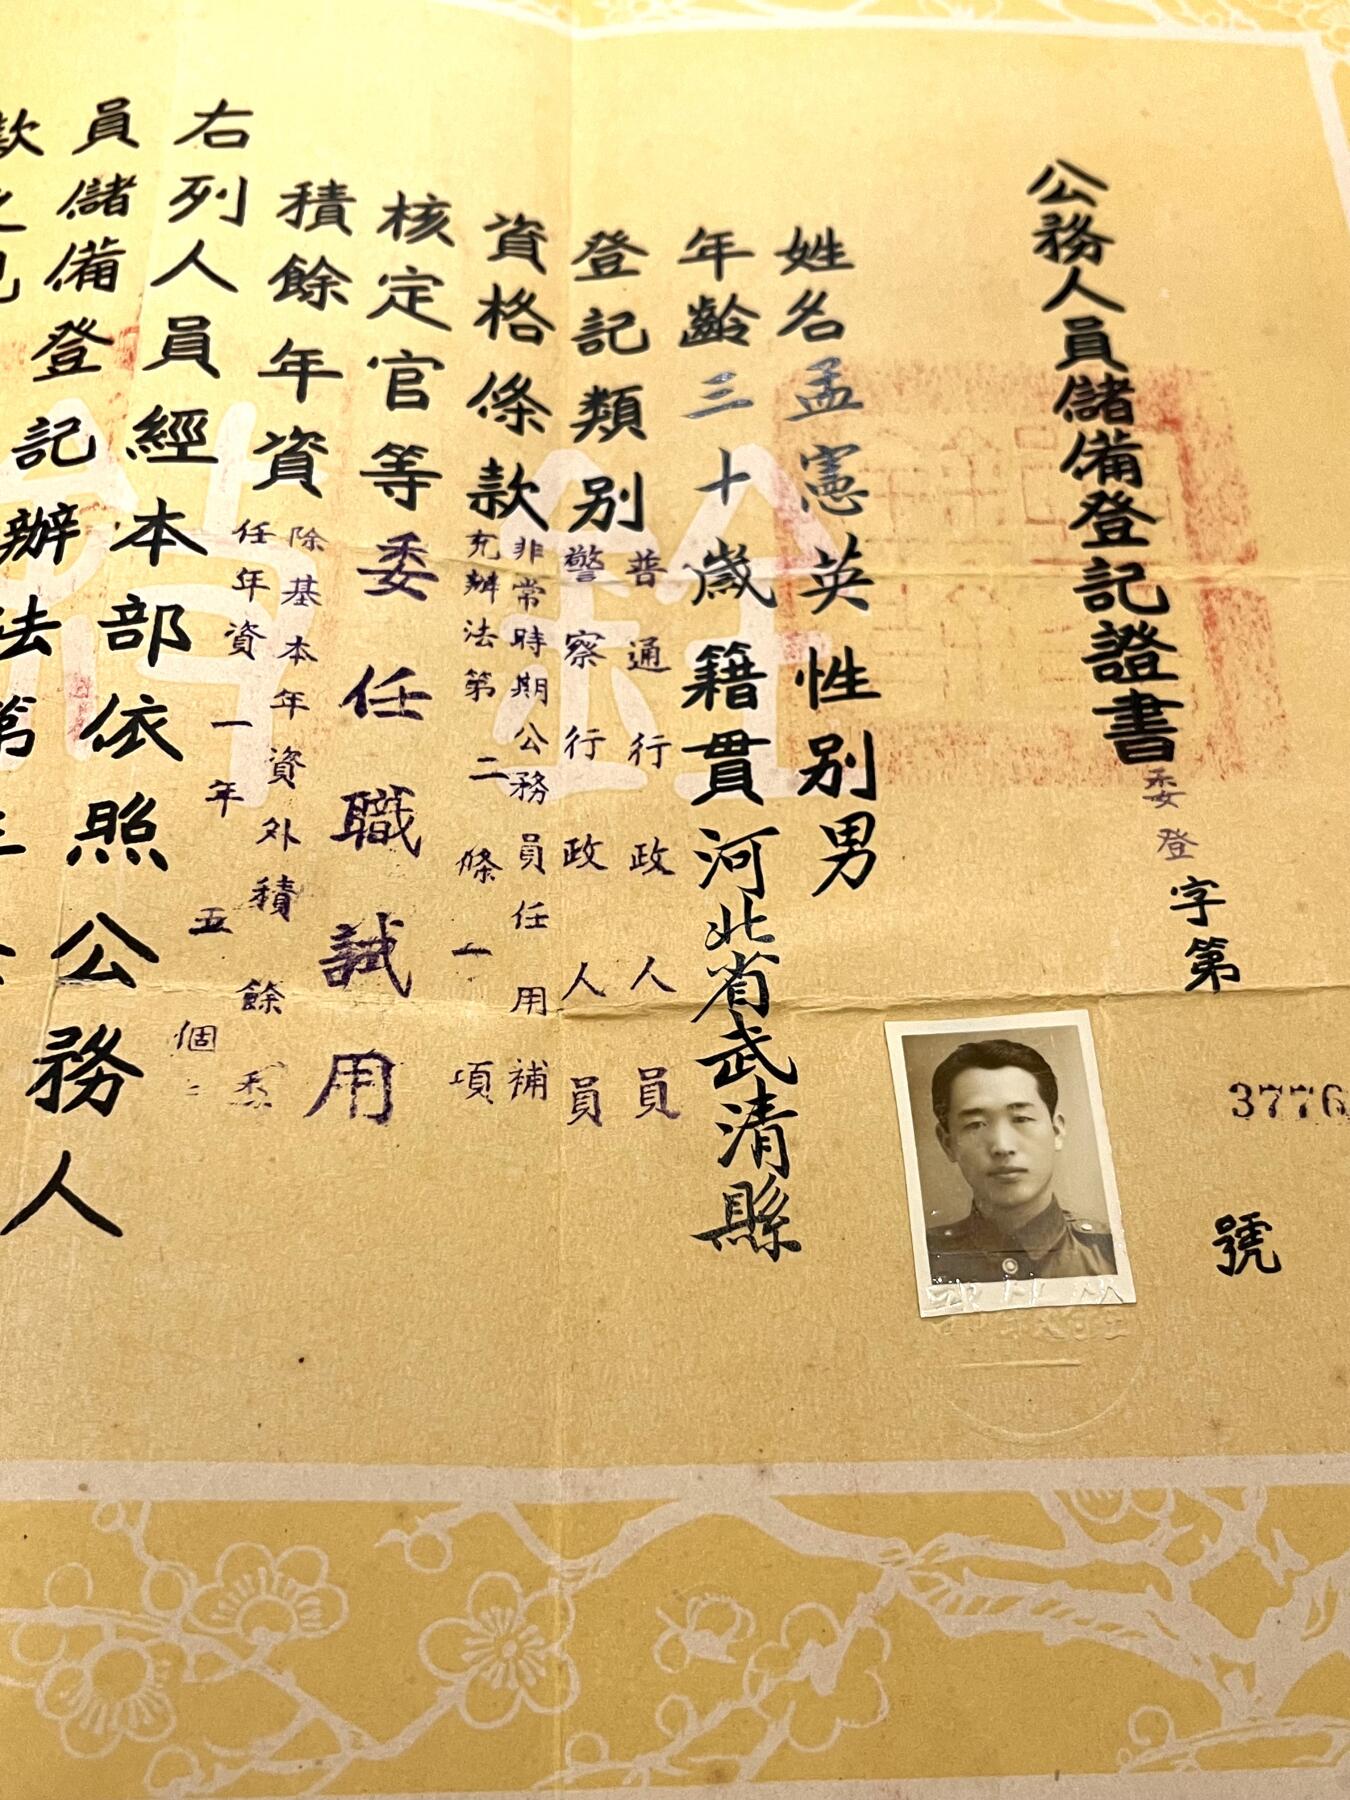 公務人員儲備登記證書
委登字第3776號
姓名孟憲英性別男
年齡三十歲籍貫河北省武清縣
登記類別
普通行政人員
警察行政人員
資格條款
非常時期公務員任用補
充辦法第二條一項
核定官等委任職試用
積餘年資
除基本年資外積餘
任年資一年五個
右列人員經本部依照公務人
員儲備登記辦法第
銓